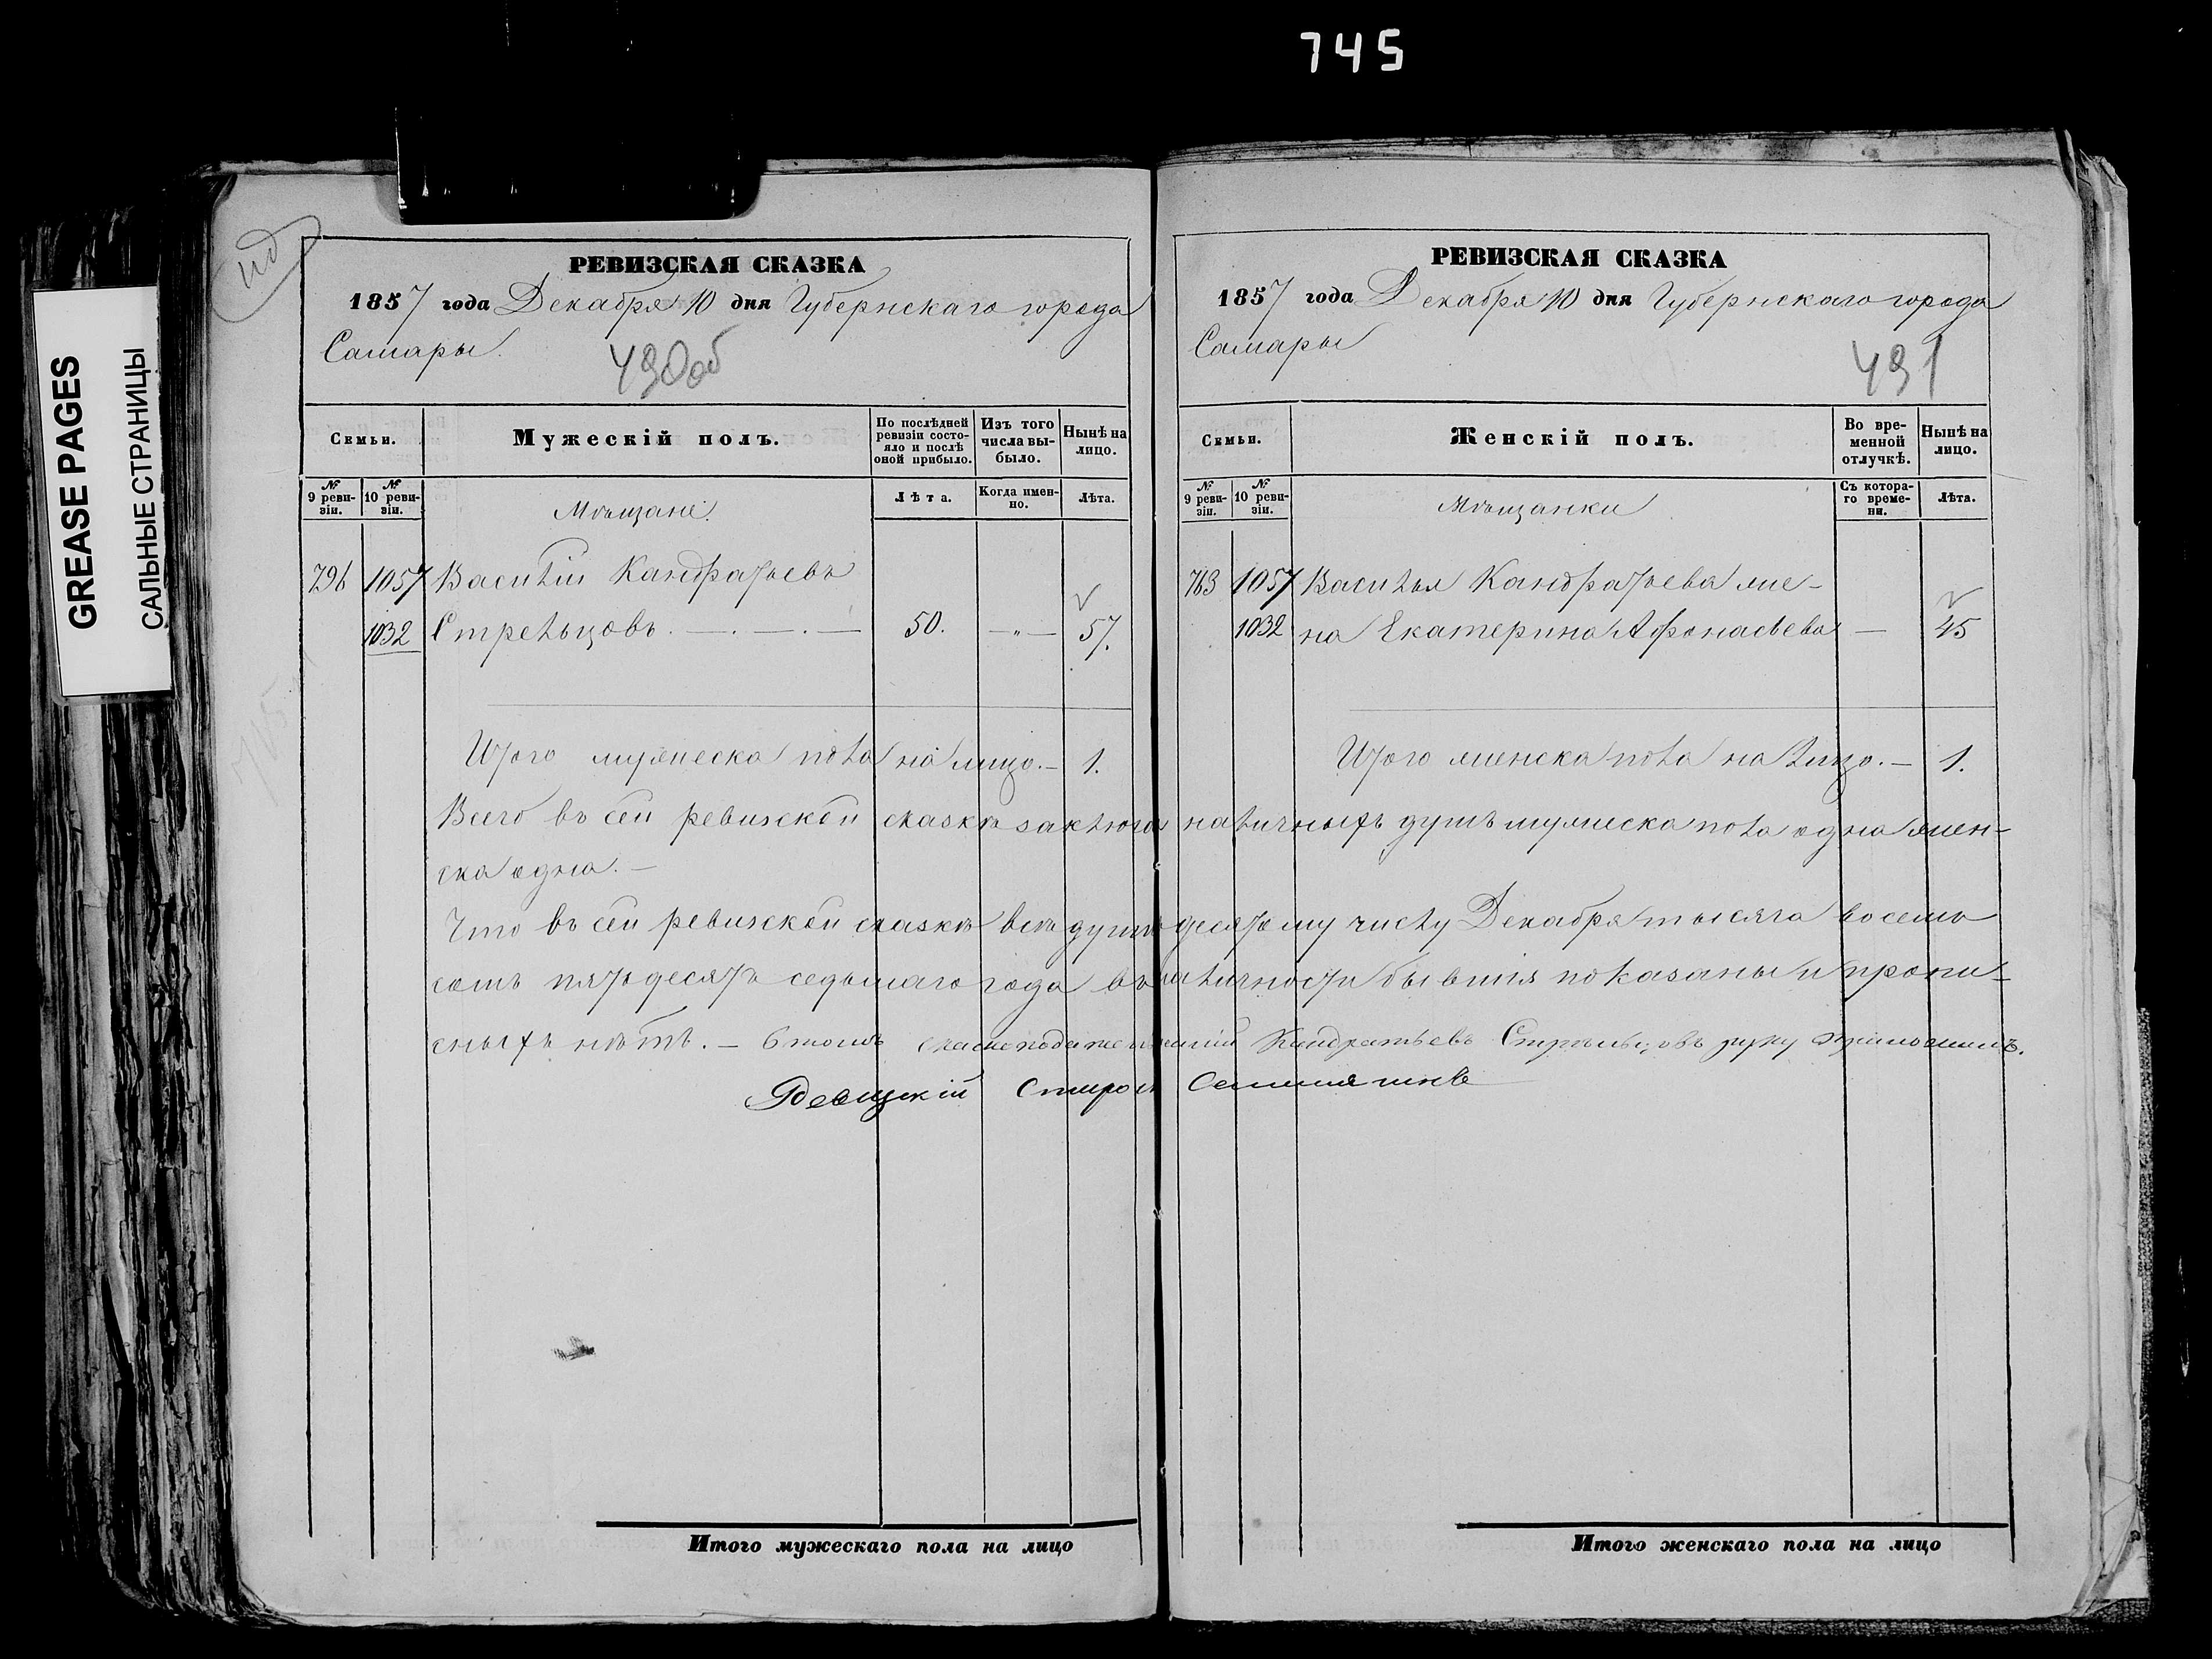 745
GREASE PAGES
САЛЬНЫЕ СТРАНИЦЫ
РЕВИЗСКАЯ СКАЗКА
1857 года Декабря 10 дня Губернскаго города
Самары.
490об
Семьи.
Мужескій полъ.
По послѣдней ревизіи состо-
яло и послѣ оной прибыло.
Изъ того числа вы-
было.
Нынѣ на лицо.
№ 9 реви-
зіи.
№ 10 реви-
зіи.
Лѣта.
Когда имен-
но.
Лѣта.
Мѣщане.
796 1057 Василій Кандратьевъ
1032 Стрельцовъ. — . — . — 50. —„— 57.
Итого мужеска пола на лицо. — 1.
РЕВИЗСКАЯ СКАЗКА
1857 года Декабря 10 дня Губернскаго города
Самары
491
Семьи.
Женскій полъ.
Во вре-
менной отлучкѣ.
Нынѣ на лицо.
№ 9 реви-
зіи.
№ 10 реви-
зіи.
Съ котора-
го време-
ни.
Лѣта.
Мѣщанки
763 1057 Василья Кандратьева же-
1032 на Екатерина Афонасьева — 45
Итого женска пола на лицо. — 1.
Всего въ сей ревизской сказкѣ заключ наличныхъ душъ мужеска пола одна жен-
ска одна. —
Что въ сей ревизской сказкѣ всѣ души десятому числу Декабря тысяча восемь
сотъ пятьдесятъ седьмаго года въ наличности бывшія показаны и пропи-
сныхъ нѣтъ. — Кандратьевъ Стрельцовъ руку приложилъ.